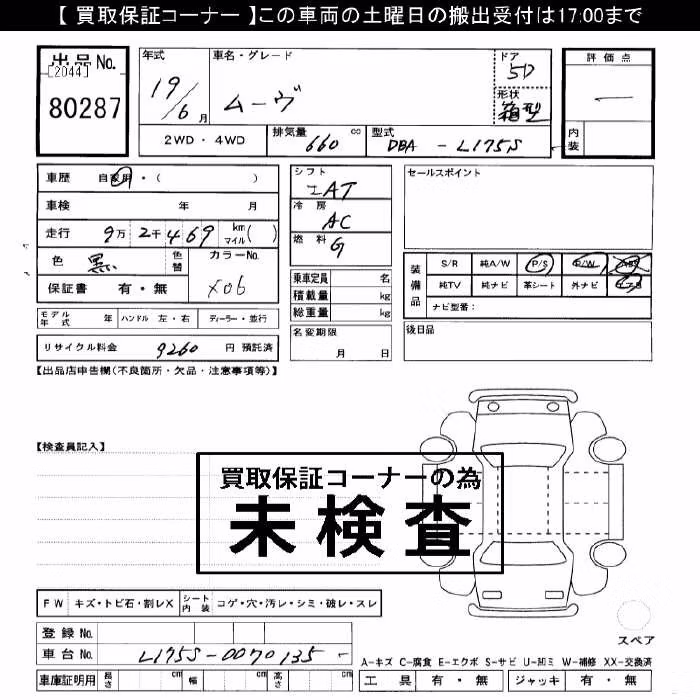 【 買取保証コーナー 】この車両の土曜日の搬出受付は17:00まで
出品No.
[2044]
80287
年式
19/6月
車名・グレード
ムーヴ
ドア
5D
形状
箱型
評価点
―
内装
2WD・4WD
排気量 660 cc
型式 DBA - L175S
車歴 自家用・( )
車検 年 月
走行 9万2千469 km マイル( )
色 黒 色替
カラーNo.
X06
保証書 有・無
シフト
IAT
冷房
AC
燃料
G
乗車定員 名
積載量 kg
総重量 kg
セールスポイント
装備品
S/R 純A/W P/S P/W ABS
純TV 純ナビ 革シート 外ナビ
ナビ型番：
モデル年式 年 ハンドル 左・右 ディーラー・並行
名変期限
月 日
後日品
リサイクル料金 9260 円 預託済
【出品店申告欄(不良箇所・欠品・注意事項等)】
【検査員記入】
買取保証コーナーの為
未検査
FW キズ・トビ石・割レX シート内装 コゲ・穴・汚レ・シミ・破レ・スレ
登録 No.
車台 No. L175S-0070135 -
スペア
A-キズ C-腐食 E-エクボ S-サビ U-凹ミ W-補修 XX-交換済
車庫証明用 長さ cm 幅 cm 高さ cm
工具 有・無 ジャッキ 有・無